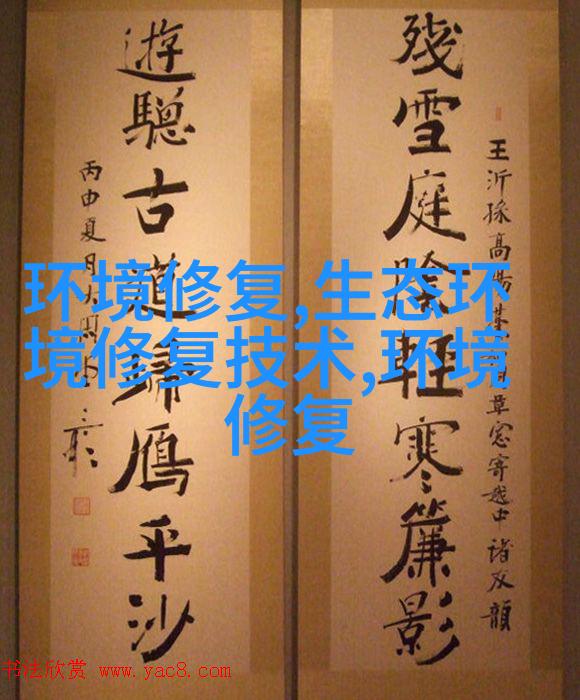 殘雪庭陰輕寒簾影
王沂孫高陽臺和草窓寄越中諸友韻
遊驄古道歸鴈平沙
丙申夏月
环境修复,生态环
境修复技术,环境
修复
书法欣赏 www.yac8.com